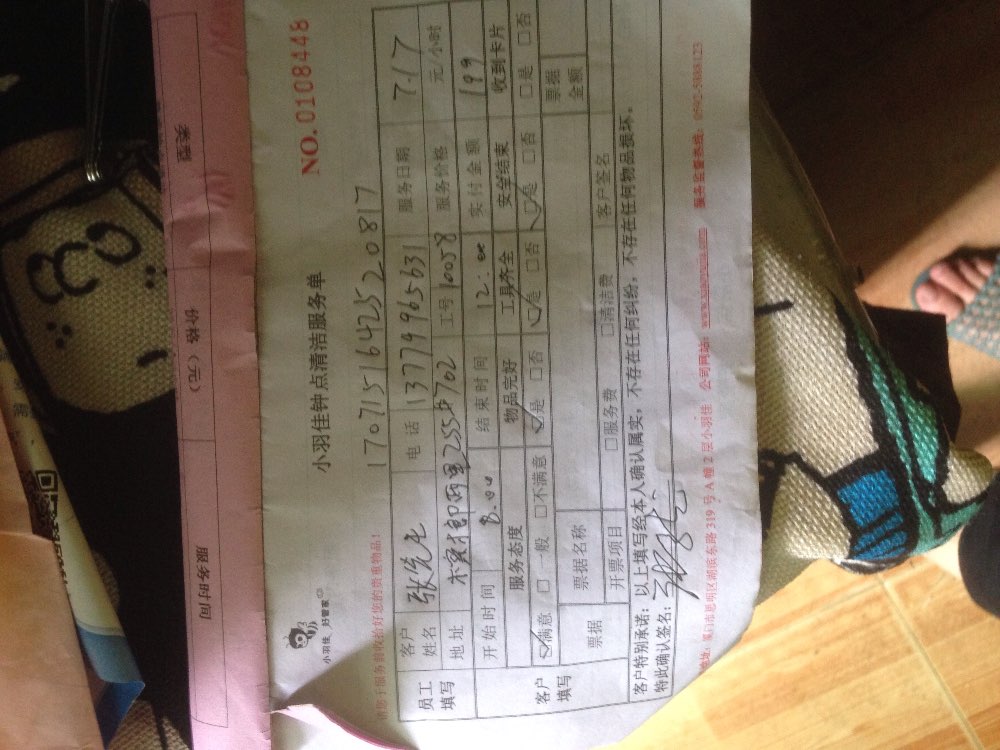 类型
价格（元）
服务时间
NO.0108448
小羽佳 好管家
小羽佳钟点清洁服务单
17071516425208​17
请您于服务前收拾好您的贵重物品！
员工填写 客户姓名 张先生 电话 13779965631 服务日期 7.17
地址 702 工号 10058 服务价格 元/小时
开始时间 8.00 结束时间 12:00 实付金额 199
客户填写 服务态度 物品完好 工具齐全 安全结束 收到卡片
☑满意 □一般 □不满意 ☑是 □否 ☑是 □否 ☑是 □否 □是 □否
票据 票据名称 票据金额
开票项目 □服务费 □清洁费 客户签名
客户特别承诺：以上填写经本人确认属实，不存在任何纠纷，不存在任何物品损坏。
特此确认签名：
地址：厦门市思明区湖滨东路319号A幢2层小羽佳 公司网站： 服务监督热线：0592-5888123